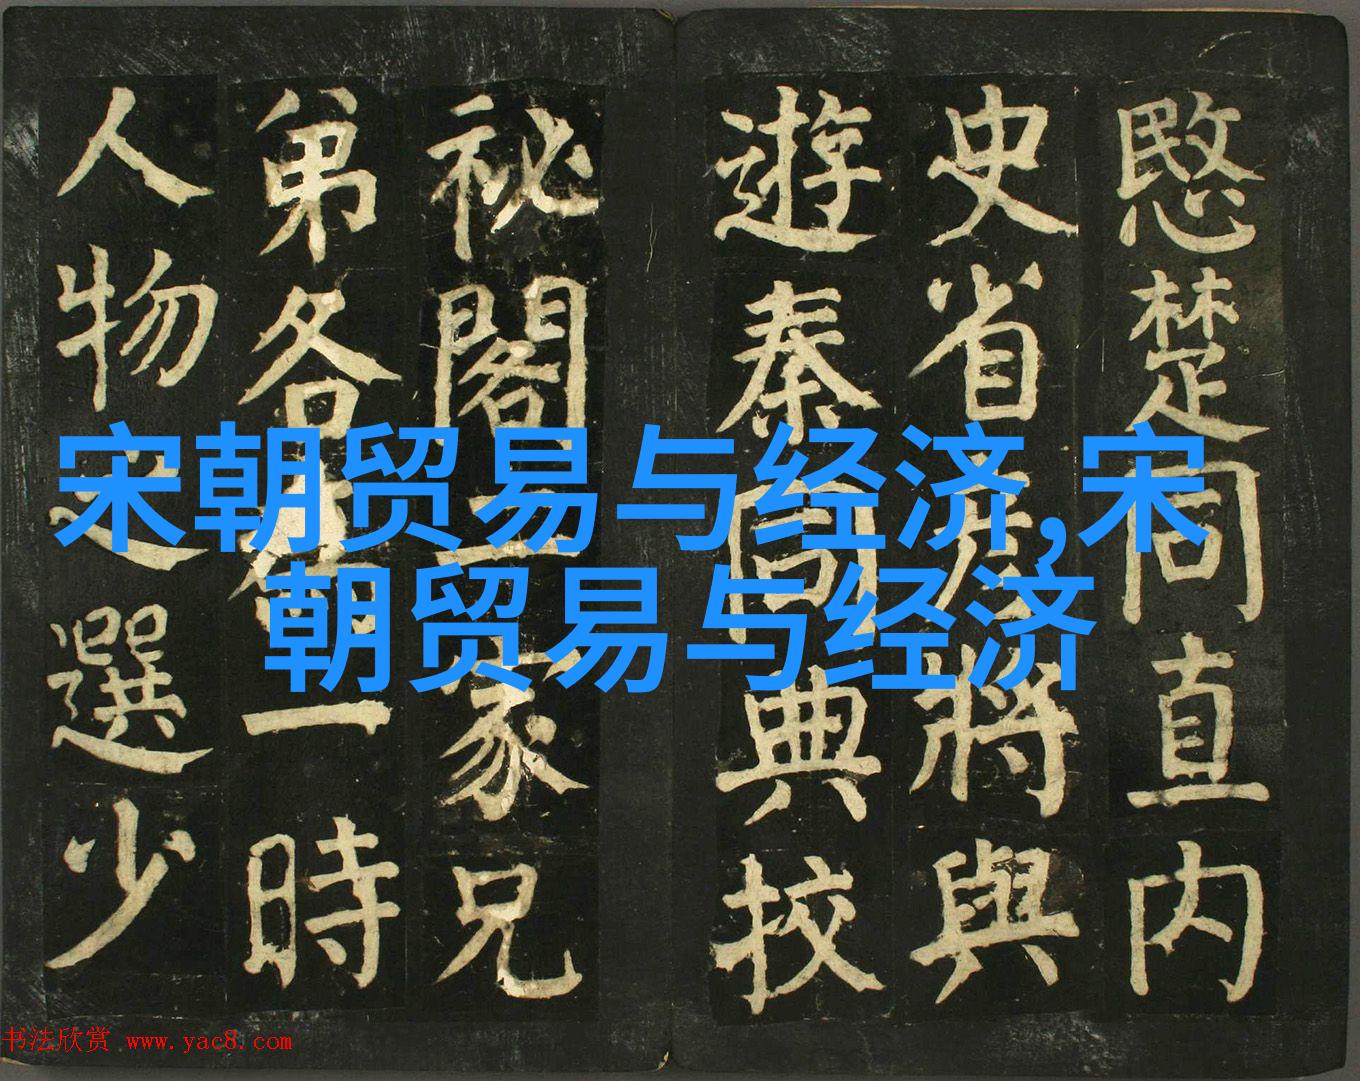 愍楚同直内
史省彦將與
遊秦同典校
祕閣二家兄
弟各為一時
人物之選少
宋朝贸易与经济,宋
朝贸易与经济
书法欣赏 www.yac8.com